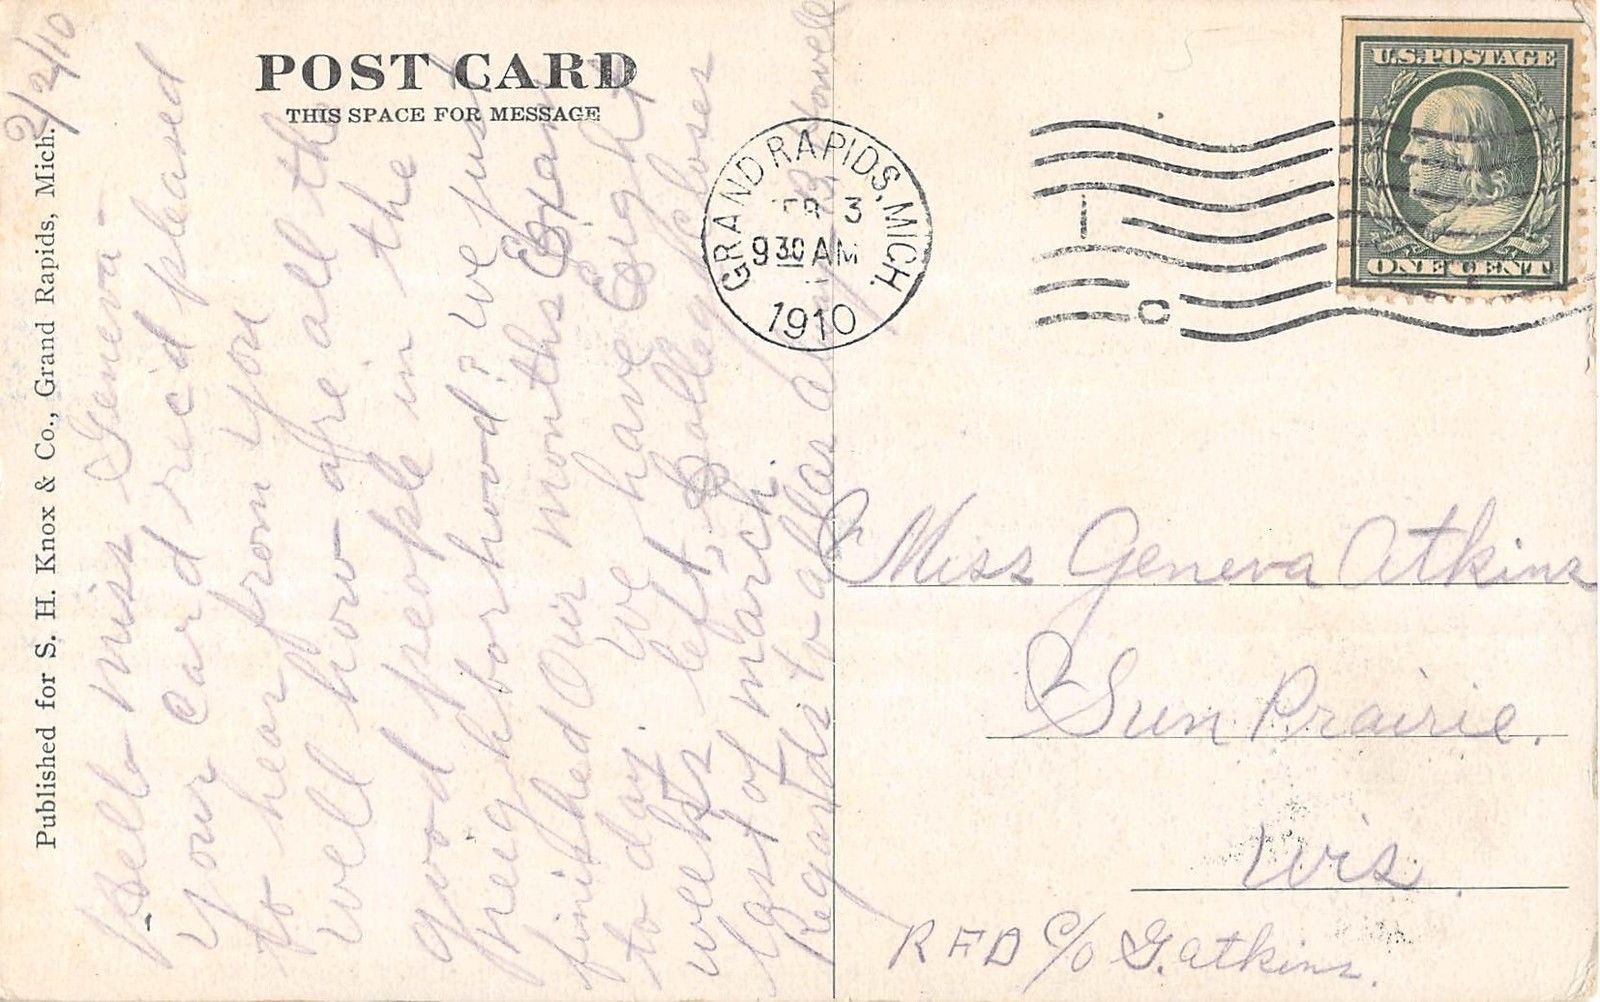 POST CARD
THIS SPACE FOR MESSAGE
2/2/10
Hello miss Geneva-
your card rec'd pleased
to hear from you
well how are all the
good people in the
neighborhood? we just
finished our months Exam
to day. we have Eight
weeks left, College closes
last of march.
Regards to all
Howell
Published for S. H. Knox & Co., Grand Rapids, Mich.
GRAND RAPIDS, MICH.
FEB 3
9 30 AM
1910
1
C
U.S. POSTAGE
ONE CENT
Miss Geneva Atkins
Sun Prairie,
Wis.
RFD c/o G. Atkins.